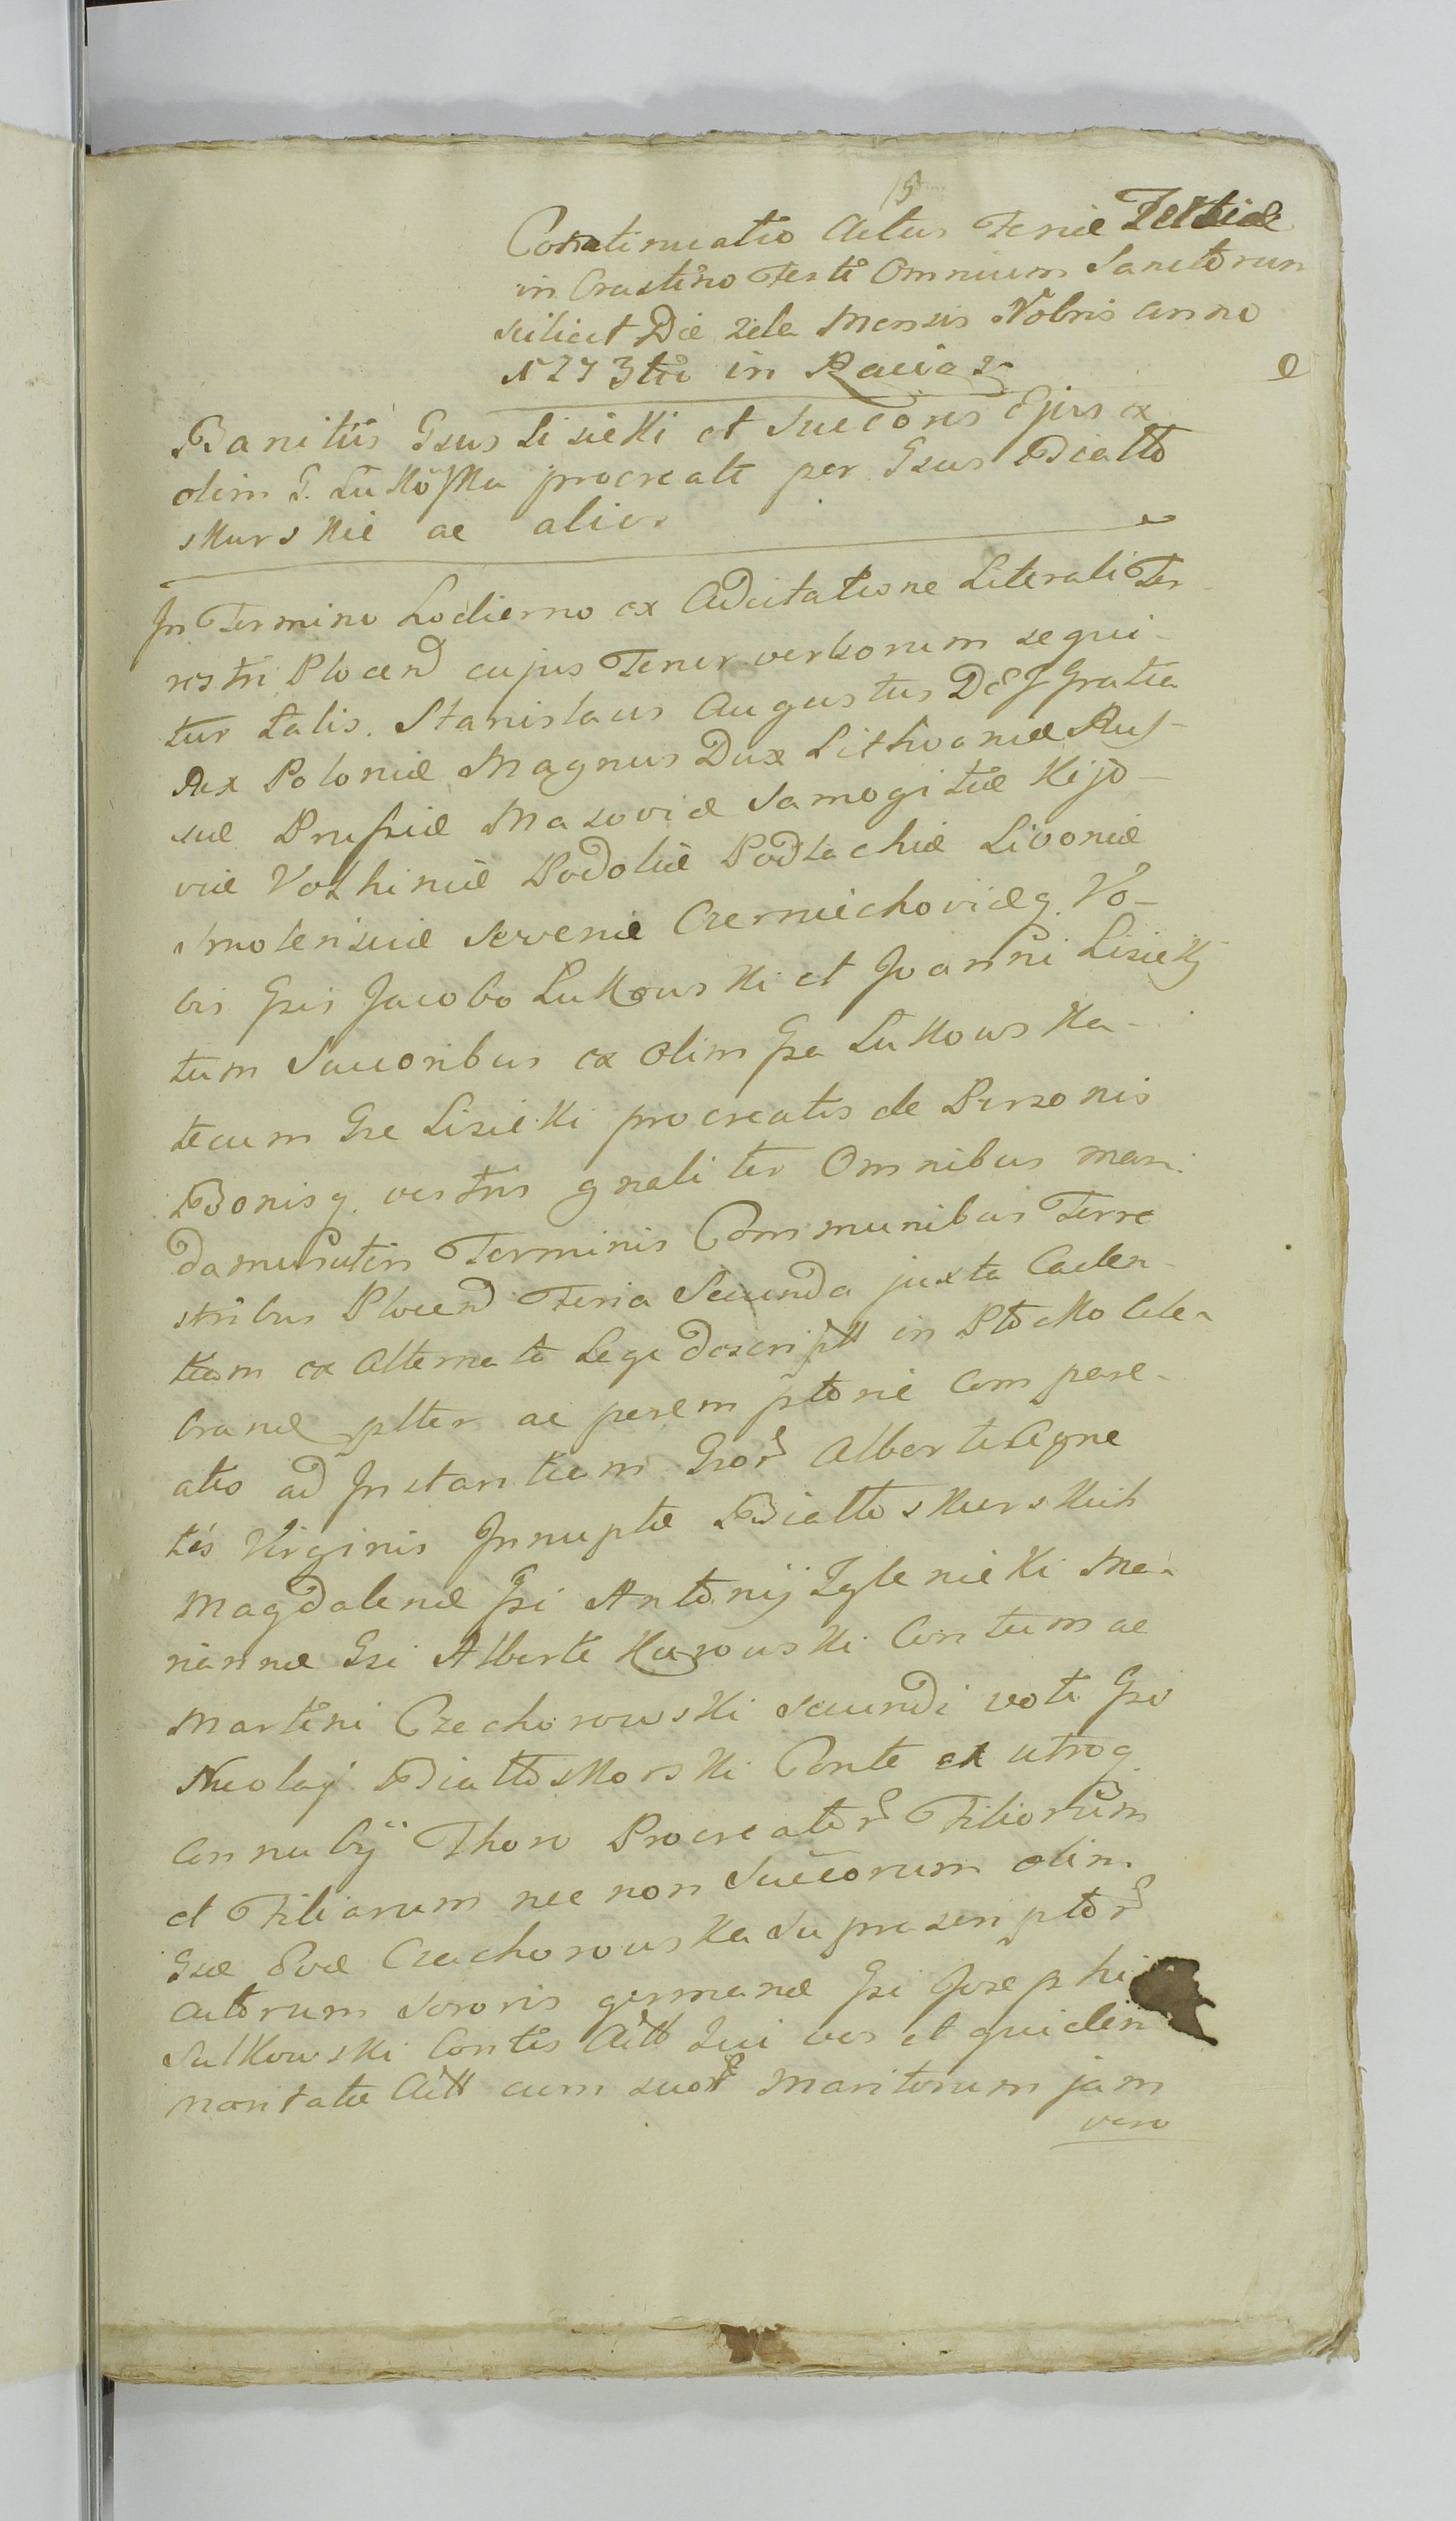 Continuatio Actus Feriæ Tertiæ
in Crastino Festi Omnium Sanctorum
scilicet Die 2da Mensis Novbris anno
1773tii in Raciąz
Banitiis Gsus Lisicki et Succōres Ejus ex
olim G. Łukoska procreati per Gsus Biatto
skurskie ac alios
In Termino hodierno ex Adcitatione Literali Ter
restri Plocen cujus Tenor verborum sequi-
tur talis. Stanislaus Augustus DEJ Gratia
Rex Poloniæ Magnus Dux Lithvaniæ Rus-
siæ Prussiæ Masoviæ Samogitiæ Kijo-
viæ Volhiniæ Podoliæ Podlachiæ Livoniæ
Smolensciæ Severiæ Czerniechoviæq. Vo-
bis Gsis Jacobo Łukowski et Joanni Lisicki
tum Succoribus ex olim Gsa Łukowska
tecum Gse Lisicki procreatis de Personis
Bonisq. vestris gnaliter Omnibus man-
damus utin Terminis Communibus Terre
stribus Plocen Feria Secunda juxta Caden-
tiam ex Alternata Lege descriptt in Płocko cele-
brand pltter ac peremptorie compare-
atis ad Instantiam Gsor Alberti Agne
tis Virginis Innuptæ Biattoskurskich
Magdalenæ Gsi Antonij Zglenicki Ma-
riannæ Gsi Alberti Karwowski Contum ac
Martini Czechorowski secundi voti Gsi
Nicolaj Biattoskorski Conte ex utroq.
Connubij Thoro Procreator Filiorum
et Filiarum nec non Succorum olim
Gsæ Evæ Czachorowska Suprascriptor
Actorum Sororis germanæ Gsi Josephi
Sulkowski Contis Actt Qui vos et quidem
maritatæ Actt cum suor Maritorum jam
vero